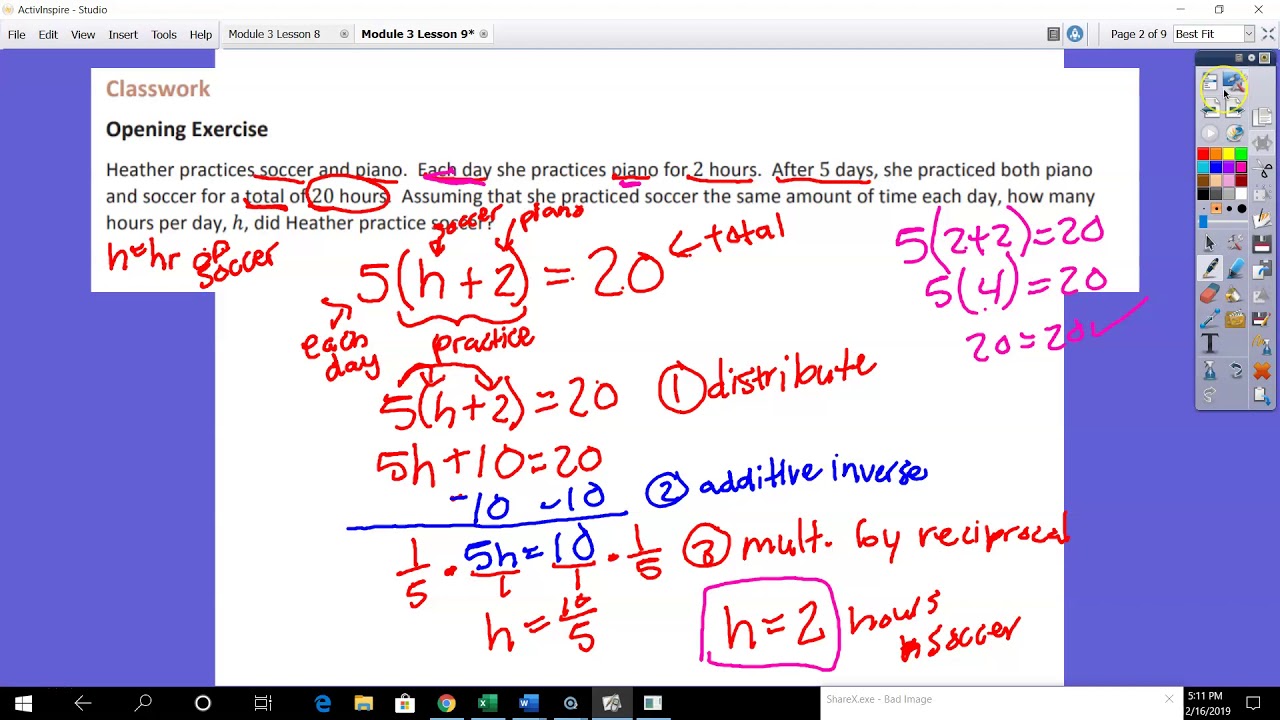 ActivInspire - Studio
File Edit View Insert Tools Help Module 3 Lesson 8 Module 3 Lesson 9* Page 2 of 9 Best Fit
Classwork
Opening Exercise
Heather practices soccer and piano. Each day she practices piano for 2 hours. After 5 days, she practiced both piano
and soccer for a total of 20 hours. Assuming that she practiced soccer the same amount of time each day, how many
hours per day, h, did Heather practice soccer?
soccer piano
h=hr of
soccer
5(h+2)=20 ← total
each
day
practice
5(2+2)=20
5(4)=20
20=20✓
5(h+2)=20 ① distribute
5h+10=20
-10 -10 ② additive inverse
1/5 · 5h/1 = 10/1 · 1/5 ③ mult. by reciprocal
h=10/5
h=2 hours
soccer
ShareX.exe - Bad Image
5:11 PM
2/16/2019